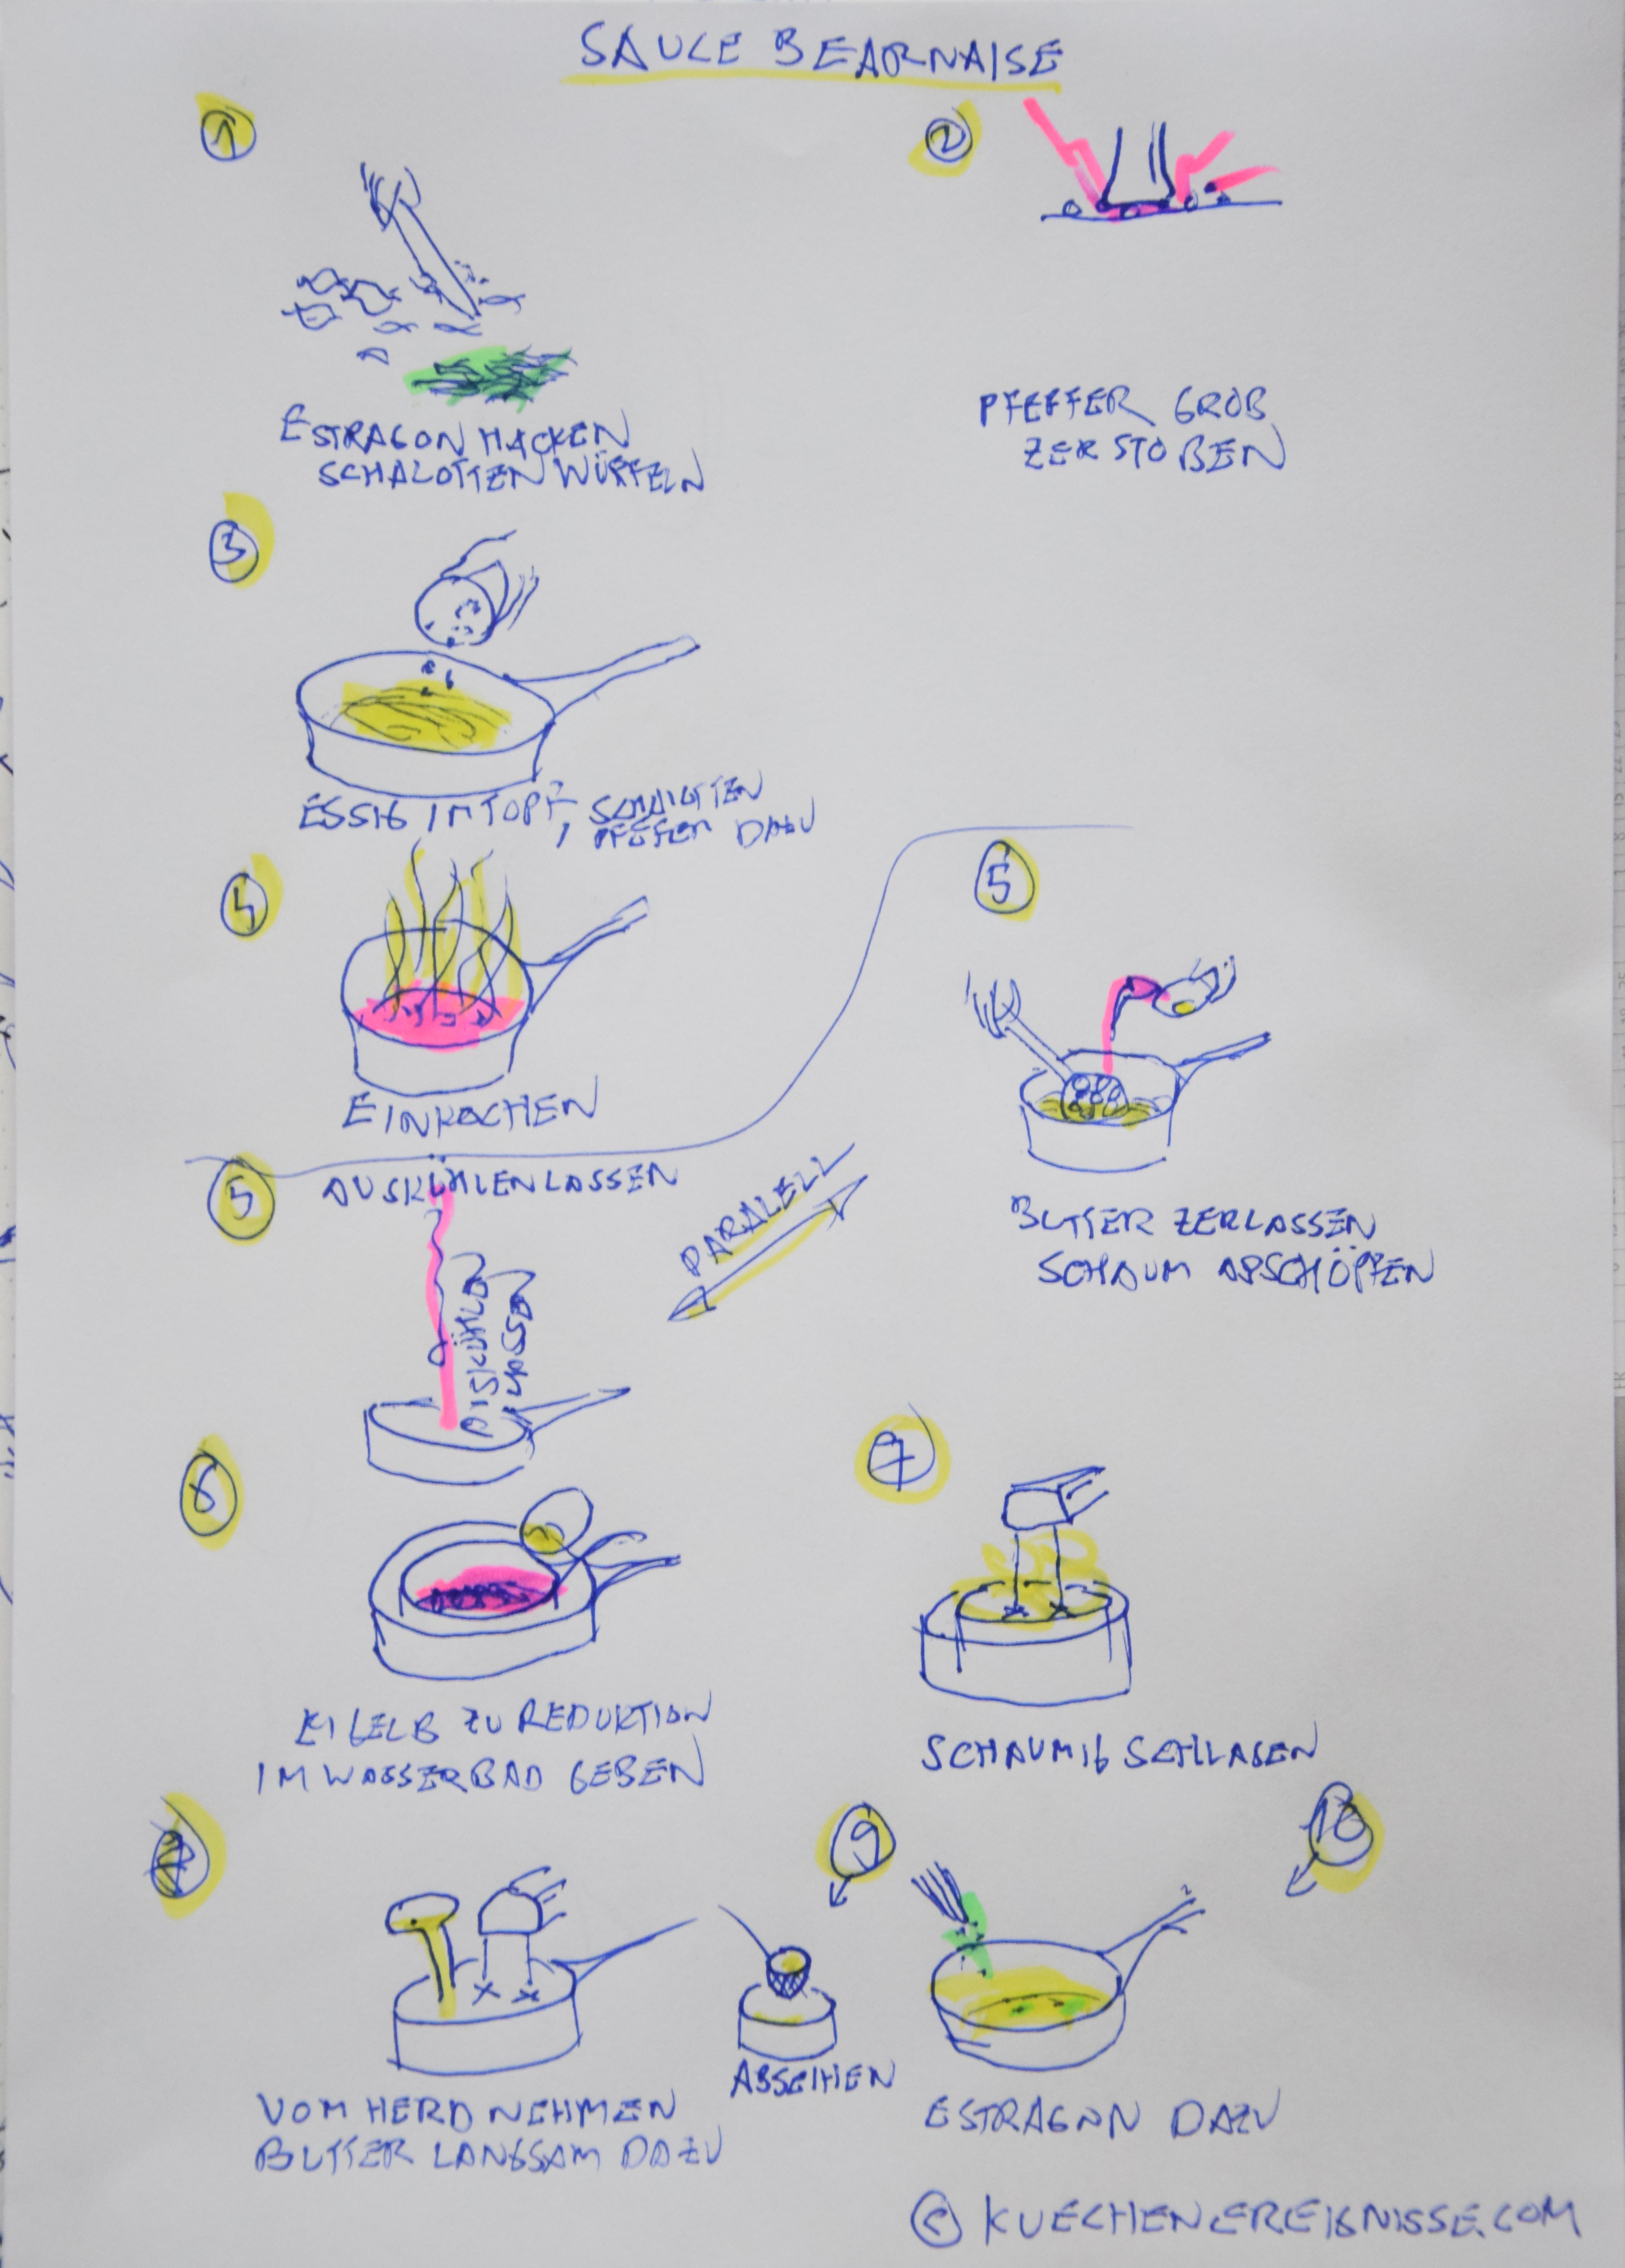 SAUCE BEARNAISE
1
2
ESTRAGON HACKEN
SCHALOTTEN WÜRFELN
PFEFFER GROB
ZERSTOßEN
3
ESSIG IM TOPF, SCHALOTTEN
PFEFFER DAZU
4
EINKOCHEN
5
BUTTER ZERLASSEN
SCHAUM ABSCHÖPFEN
5
AUSKÜHLEN LASSEN
AUSKÜHLEN
LASSEN
PARALELL
6
EIGELB ZU REDUKTION
IM WASSERBAD GEBEN
7
SCHAUMIG SCHLAGEN
VOM HERD NEHMEN
BUTTER LANGSAM DAZU
9
ABSEIHEN
10
ESTRAGON DAZU
© KUECHENEREIGNISSE.COM